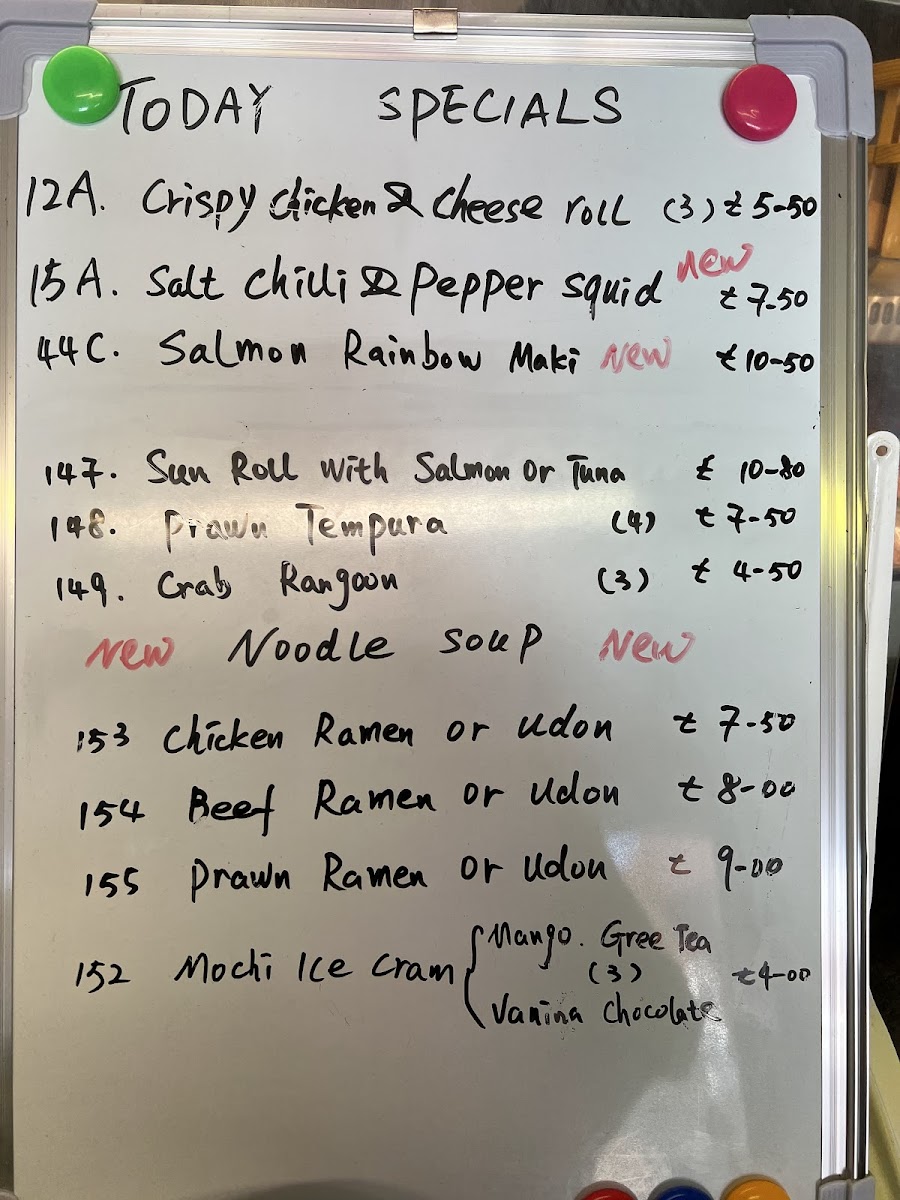 TODAY SPECIALS
12A. Crispy chicken & cheese roll (3) £5-50
15A. Salt chilli & pepper squid new £7-50
44C. Salmon Rainbow Maki New £10-50
147. Sun Roll with Salmon or Tuna £ 10-80
148. Prawn Tempura (4) £7-50
149. Crab Rangoon (3) £ 4-50
New Noodle soup New
153 chicken Ramen or udon £ 7-50
154 Beef Ramen or udon £ 8-00
155 prawn Ramen or udon £ 9-00
152 Mochi Ice cram Mango. Gree Tea
(3) £4-00
Vanina chocolate